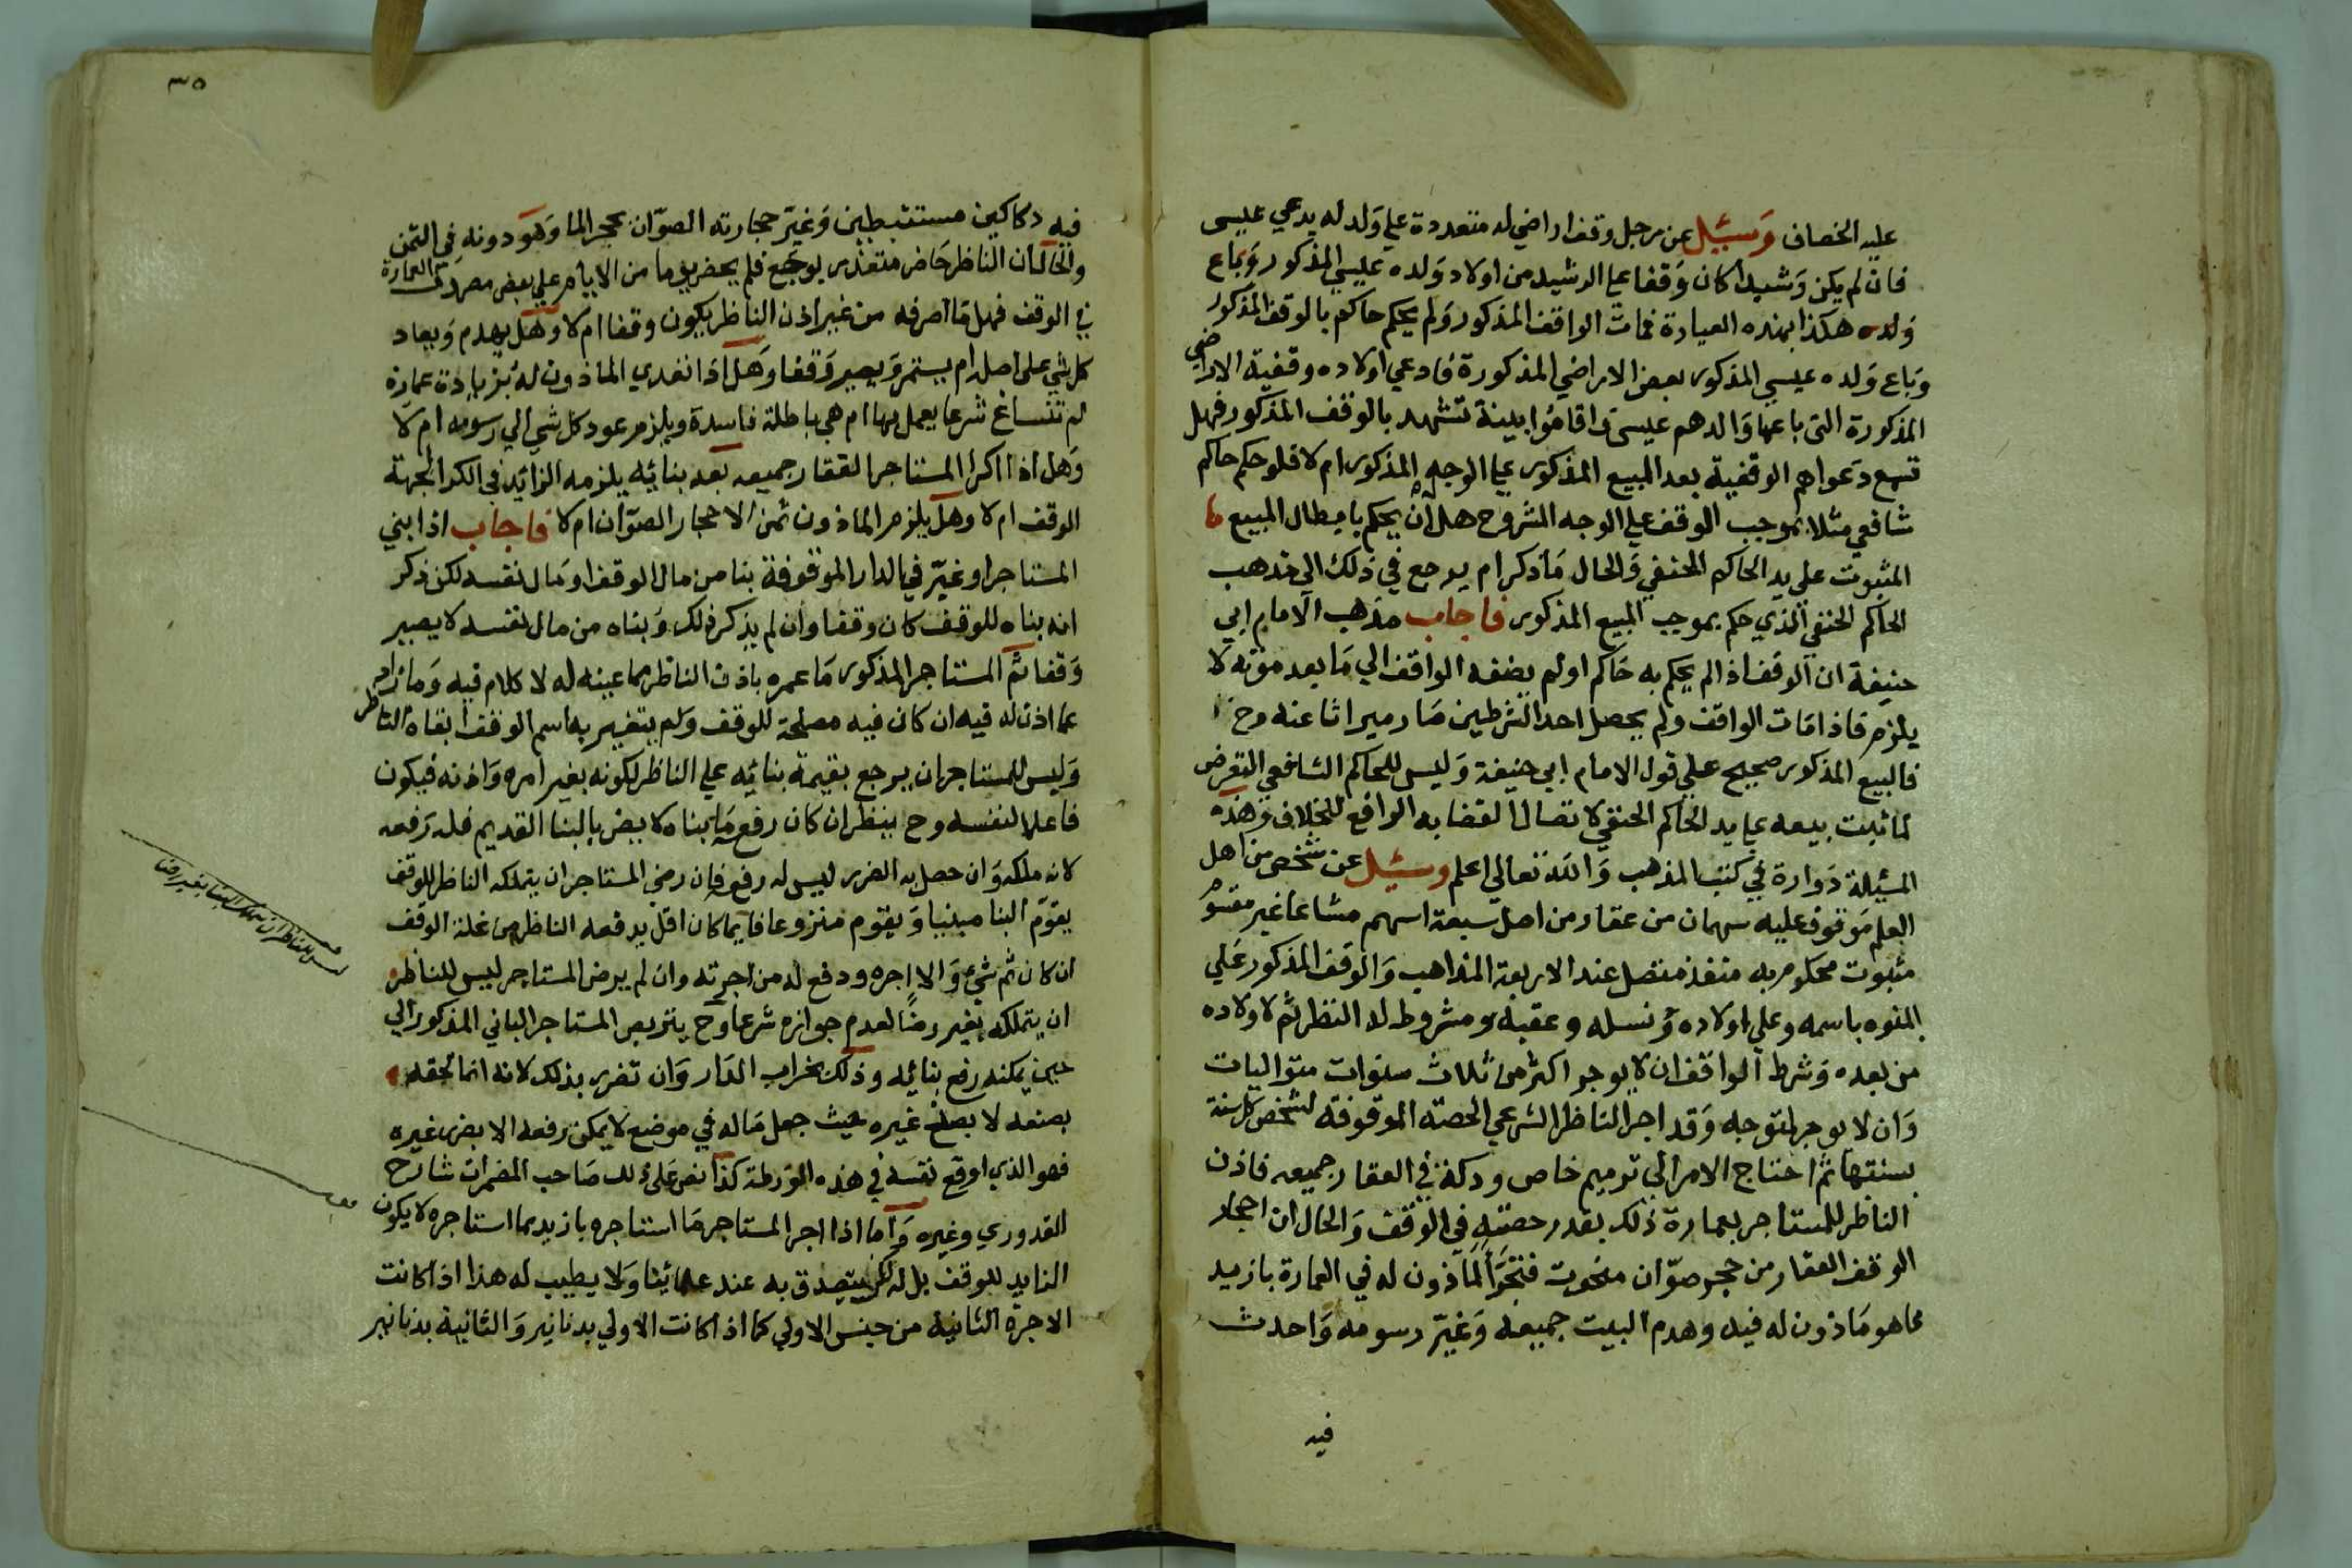 عليه الخصاف وسئيل عن رجل وقف اراضي له متعددة علي ولد له يدعي عيسى
فان لم يكن رشيدا كان وقفا علي الرشيد من اولاد ولده عليسي المذكور وباع
ولده هكذا بهذه العبارة فمات الواقف المذكور ولم يحكم حاكم بالوقف المذكور
وباع ولده عيسي المذكور بعض الاراضي المذكورة فادعي اولاده وقفية الاراضي
المذكورة التي باعها والدهم عيسى واقاموا بينة تشهد بالوقف المذكور فهل
تسمع دعواهم الوقفية بعد المبيع المذكور علي الوجه المذكور ام لا فلو حكم حاكم
شافعي مثلا بموجب الوقف علي الوجه المشروح هل له ان يحكم بابطال المبيع
المثبوت علي يد الحاكم الحنفي والحال ما ذكر ام يرجع في ذلك الي مذهب
الحاكم الحنفي الذي حكم بموجب المبيع المذكور فاجاب مذهب الامام ابي
حنيفة ان الوقف اذا لم يحكم به حاكم اولم يضفه الواقف الي ما بعد موته لا
يلزم فاذا مات الواقف ولم يحصل احد الشرطين صار ميراثا عنه وح
فالبيع المذكور صحيح علي قول الامام ابي حنيفة وليس للحاكم الشافعي التعرض
لما ثبت بيعه علي يد الحاكم الحنفي لاتصال القضا به الرافع للخلاف وهذه
المسئيلة دوارة في كتب المذهب والله تعالي اعلم وسئيل عن شخص من اهل
العلم موقوف عليه سهمان من عقار من اصل سبعة اسهم مشاعا غير مقسوم
مثبوت محكوم به منفذ متصل عند الاربعة المذاهب والوقف المذكور علي
المنوه باسمه وعلي اولاده ونسله وعقبه ومشروط له النظر ثم لاولاده
من بعده وشرط الواقف ان لا يوجر اكثر من ثلاث سنوات متواليات
وان لا يوجر لمتوجه وقد اجر الناظر الشرعي الحصته الموقوفة لشخص كل سنة
بسنتها ثم احتاج الامر الي ترميم خاص ودكة في العقار جميعه فاذن
الناظر للمستاجر بعمارة ذلك بقدر حصته في الوقف والحال ان احجار
الوقف العقار من حجر صوان منحوت الماذون له في العمارة بازيد
مما هو ماذون له فيه وهدم البيت جميعه وغير رسومه واحدث
فيه
٣٥
فيه دكاكين مستنبطين وغير حجارته الصوان بحجر الما وهو دونه في الثمن
والحال ان الناظر حاضر متعذر بوجع فلم يحضر يوما من الايام علي بعض مصروف العمارة
في الوقف فهل ما اصرفه من غير اذن الناظر يكون وقفا ام لا وهل يهدم ويعاد
كل شي علي اصله ام يستمر ويصير وقفا وهل اذا تعدي الماذون له بزيادة عمارة
لم تنساغ شرعا يعمل بها ام هي باطلة فاسدة ويلزم عود كل شي الي رسومه ام لا
وهل اذا اكرا المستاجر العقار جميعه بعد بنائيه يلزمه الزائيد في الكرا لجهة
الوقف ام لا وهل يلزم الماذون ثمن الاحجار الصوان ام لا فاجاب اذا بني
المستاجر او غير في الدار الموقوفة بنا من مال الوقف او مال نفسه لكن ذكر
انه بناه للوقف كان وقفا وان لم يذكر ذلك وبناه من مال نفسه لا يصير
وقفا ثم المستاجر المذكور ما عمره باذن الناظر مما عينه له لا كلام فيه وما زاد
عما اذن له فيه ان كان فيه مصلحة للوقف ولم يتغير به اسم الوقف ابقاه الناظر
وليس للمستاجر ان يرجع بقيمة بنائيه علي الناظر لكونه بغير امره واذنه فيكون
فاعلا لنفسه وح ينظر ان كان رفع ما بناه لا يضر بالبنا القديم فله رفعه
لانه ملكه وان حصل به الضرر ليس له رفع فان رضي المستاجر ان يتملكه الناظر للوقف
يقوم البنا مبنيا ويقوم منزوعا فايما كان اقل يدفعه الناظر من غلة الوقف
ان كان ثم شي والا اجره ودفع له من اجرته وان لم يرض المستاجر ليس للناظر
ان يتملكه بغير رضا لعدم جوازه شرعا وح يتربص المستاجر الباني المذكور الي
حين يمكنه رفع بنائيه وذلك بخراب الدار وان تضرر بذلك لانه انما لحقه
بصنعه لا بصنع غيره حيث جعل ماله في موضع لا يمكن رفعه الا بضرر غيره
فهو الذي اوقع نفسه في هذه الورطة كذا نص علي ذلك صاحب المضمرات شارح
القدوري وغيره واما اذا اجر المستاجر ما استاجره بازيد مما استاجره لا يكون
الزايد للوقف بل له لكن يتصدق به عند علمائينا ولا يطيب له هذا اذا كانت
الاجرة الثانية من جنس الاولي كما اذا كانت الاولي بدنانير والثانية بدنانير
ليس للناظر ان يتملك البنا بغير رضا